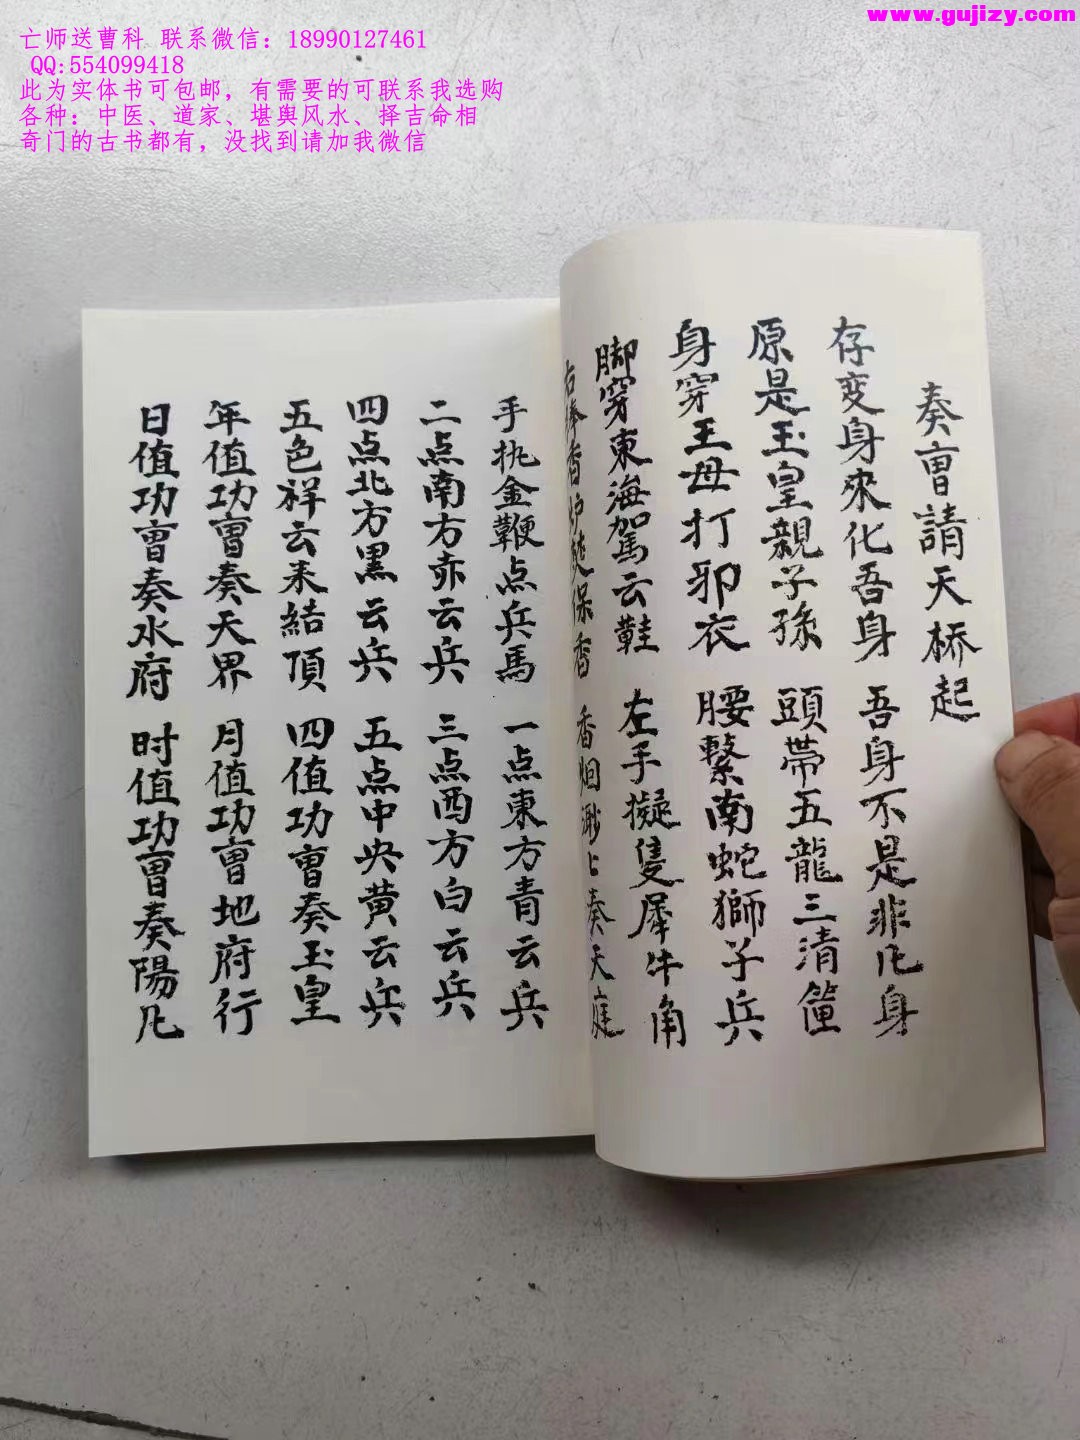 www.gujizy.com
亡师送曹科 联系微信：18990127461
QQ:554099418
此为实体书可包邮，有需要的可联系我选购
各种：中医、道家、堪舆风水、择吉命相
奇门的古书都有，没找到请加我微信
奏曺請天桥起
存变身來化吾身 吾身不是非凡身
原是玉皇親子孫 頭帶五龍三清
身穿王母打邪衣 腰繫南蛇獅子兵
脚穿東海駕云鞋 左手擬隻犀牛角
右捧香炉 保香 香烟渺上奏天庭
手执金鞭点兵馬 一点東方青云兵
二点南方赤云兵 三点西方白云兵
四点北方黑云兵 五点中央黄云兵
五色祥云来結頂 四值功曺奏玉皇
年值功曺奏天界 月值功曺地府行
日值功曺奏水府 时值功曺奏陽凡